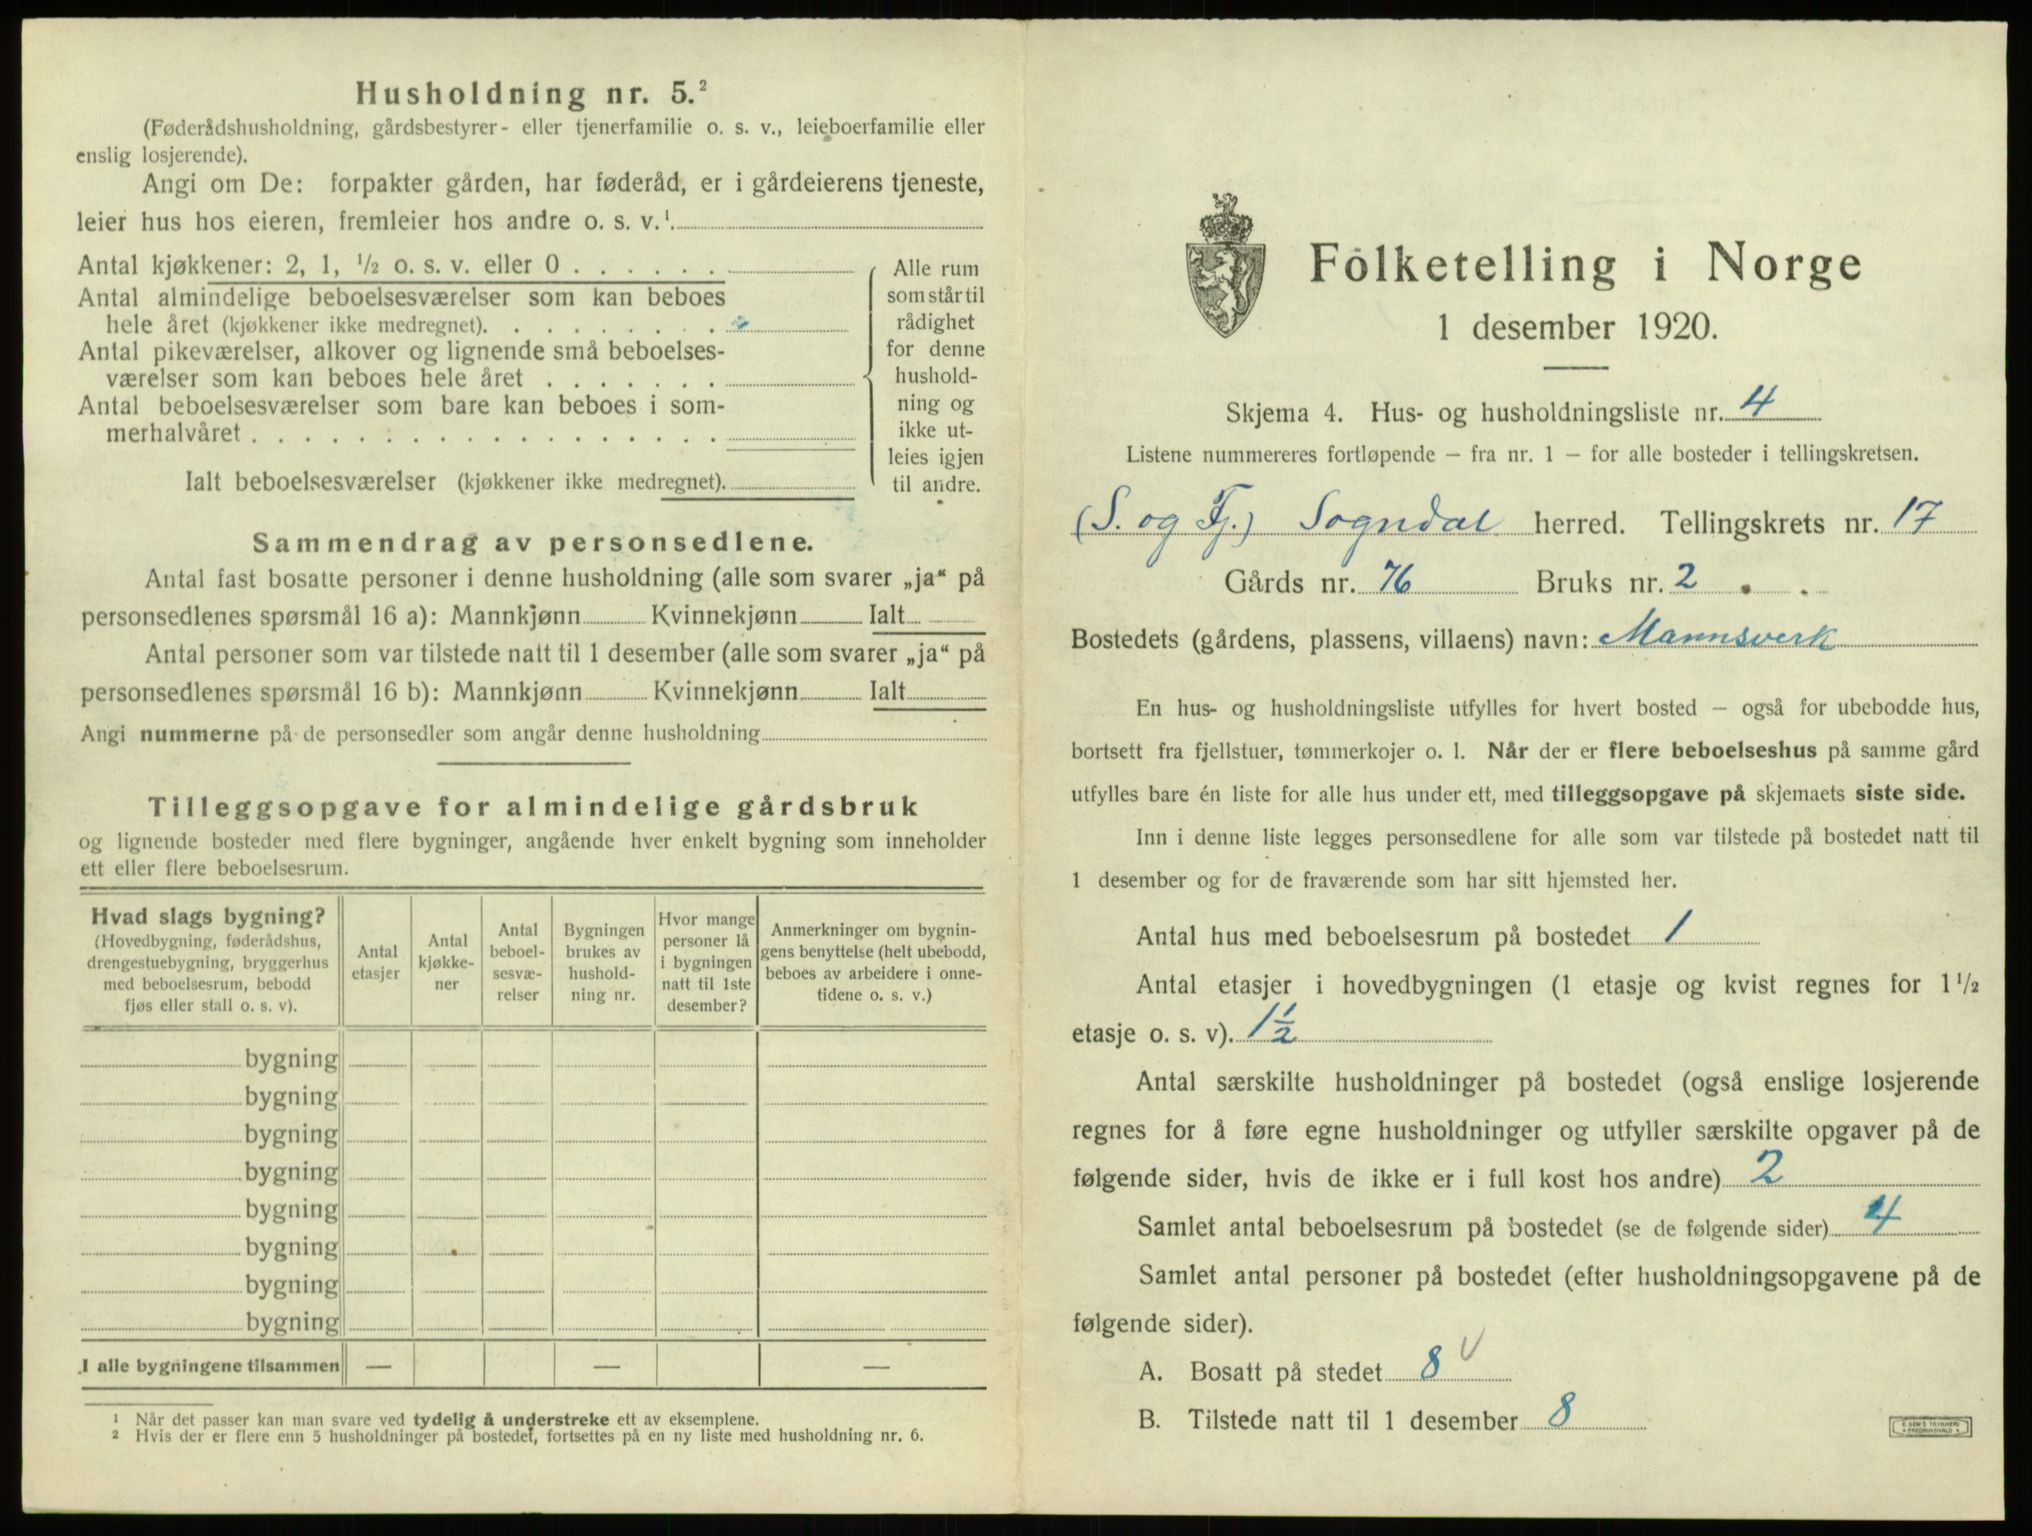 Husholdning nr. 5.²
(Føderådshusholdning, gårdsbestyrer- eller tjenerfamilie o. s. v., leieboerfamilie eller
enslig losjerende).
Angi om De: forpakter gården, har føderåd, er i gårdeierens tjeneste,
leier hus hos eieren, fremleier hos andre o. s. v.¹
Antal kjøkkener: 2, 1, ½ o. s. v. eller 0
Antal almindelige beboelsesværelser som kan beboes
hele året (kjøkkener ikke medregnet).
Antal pikeværelser, alkover og lignende små beboelses-
værelser som kan beboes hele året
Antal beboelsesværelser som bare kan beboes i som-
merhalvåret
Ialt beboelsesværelser (kjøkkener ikke medregnet).
Alle rum
som står til
rådighet
for denne
hushold-
ning og
ikke ut-
leies igjen
til andre.
Sammendrag av personsedlene.
Antal fast bosatte personer i denne husholdning (alle som svarer „ja“ på
personsedlenes spørsmål 16 a): Mannkjønn Kvinnekjønn Ialt
Antal personer som var tilstede natt til 1 desember (alle som svarer „ja“ på
personsedlenes spørsmål 16 b): Mannkjønn Kvinnekjønn Ialt
Angi nummerne på de personsedler som angår denne husholdning
Tilleggsopgave for almindelige gårdsbruk
og lignende bosteder med flere bygninger, angående hver enkelt bygning som inneholder
ett eller flere beboelsesrum.
Hvad slags bygning?
(Hovedbygning, føderådshus,
drengestuebygning, bryggerhus
med beboelsesrum, bebodd
fjøs eller stall o. s. v).
Antal
etasjer
Antal
kjøkke-
ner
Antal
beboel-
sesvæ-
relser
Bygningen
brukes av
hushold-
ning nr.
Hvor mange
personer lå
i bygningen
natt til 1ste
desember?
Anmerkninger om bygnin-
gens benyttelse (helt ubebodd,
beboes av arbeidere i onne-
tidene o. s. v.)
bygning
bygning
bygning
bygning
bygning
bygning
bygning
bygning
I alle bygningene tilsammen — — —
¹ Når det passer kan man svare ved tydelig å understreke ett av eksemplene.
² Hvis der er flere enn 5 husholdninger på bostedet, fortsettes på en ny liste med husholdning nr. 6.
Folketelling i Norge
1 desember 1920.
Skjema 4. Hus- og husholdningsliste nr. 4
Listene nummereres fortløpende — fra nr. 1 — for alle bosteder i tellingskretsen.
(S. og Fj.) Sogndal herred. Tellingskrets nr. 17
Gårds nr. 76 Bruks nr. 2
Bostedets (gårdens, plassens, villaens) navn: Mannsverk
En hus- og husholdningsliste utfylles for hvert bosted — også for ubebodde hus,
bortsett fra fjellstuer, tømmerkojer o. l. Når der er flere beboelseshus på samme gård
utfylles bare én liste for alle hus under ett, med tilleggsopgave på skjemaets siste side.
Inn i denne liste legges personsedlene for alle som var tilstede på bostedet natt til
1 desember og for de fraværende som har sitt hjemsted her.
Antal hus med beboelsesrum på bostedet 1
Antal etasjer i hovedbygningen (1 etasje og kvist regnes for 1½
etasje o. s. v). 1½
Antal særskilte husholdninger på bostedet (også enslige losjerende
regnes for å føre egne husholdninger og utfyller særskilte opgaver på de
følgende sider, hvis de ikke er i full kost hos andre) 2
Samlet antal beboelsesrum på bostedet (se de følgende sider) 4
Samlet antal personer på bostedet (efter husholdningsopgavene på de
følgende sider).
A. Bosatt på stedet 8 v
B. Tilstede natt til 1 desember 8
E. SEM'S TRYKKERI
FREDRIKSHALD